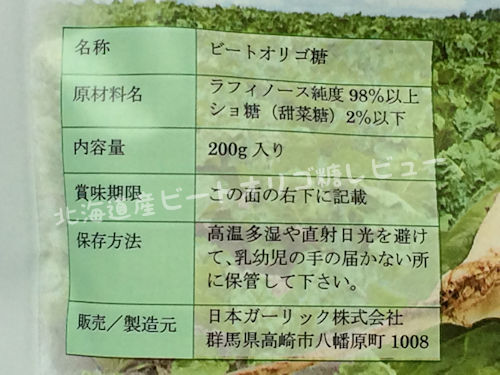 名称 ビートオリゴ糖
原材料名 ラフィノース純度 98%以上
ショ糖（甜菜糖）2%以下
内容量 200g 入り
賞味期限 この面の右下に記載
北海道産ビートオリゴ糖レビュー
保存方法 高温多湿や直射日光を避け
て、乳幼児の手の届かない所
に保管して下さい。
販売／製造元 日本ガーリック株式会社
群馬県高崎市八幡原町 1008